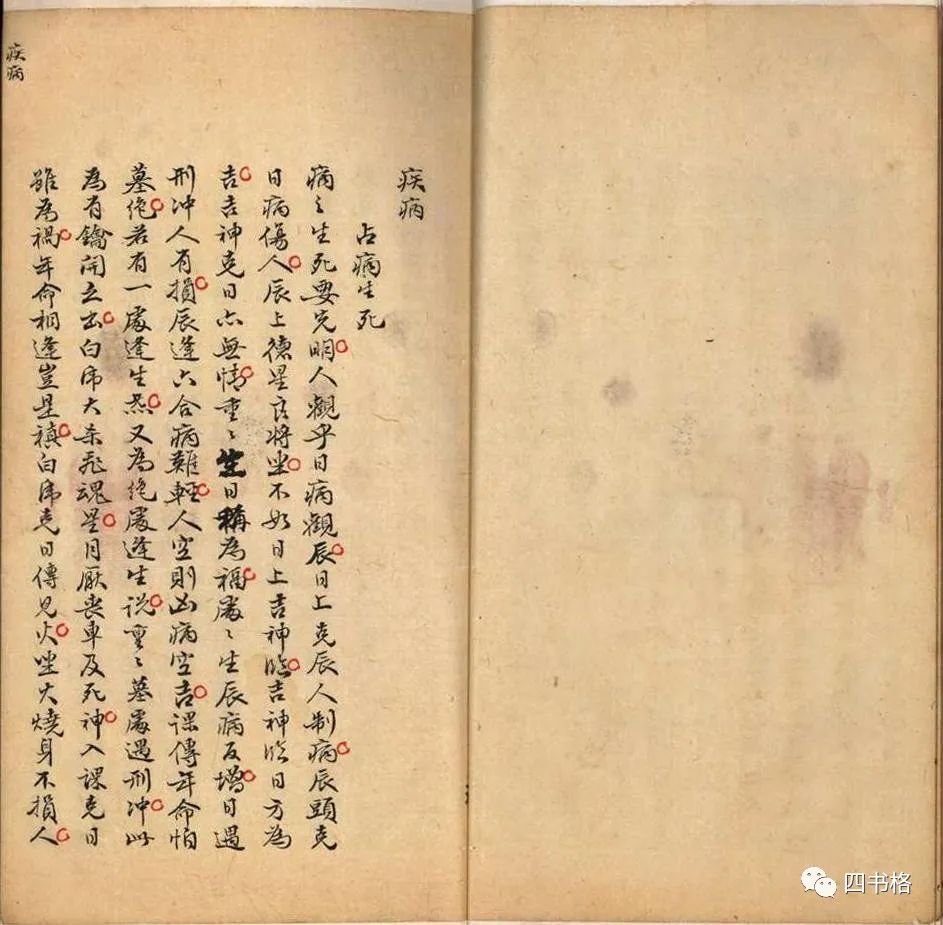 疾病
占病生死
病〻生死要先明人觀乎日病觀辰日上克辰人制病辰頭克
日病傷人辰上德星良將坐不如日上吉神臨吉神临日方為
吉吉神克日亦無情重〻生日稱為福處〻生辰病反增日遇
刑冲人有損辰逢六合病難輕人空則凶病空吉課傳年命怕
墓絶若有一處逢生炁又為絶處逢生説重〻墓處遇刑冲此
為有鑰開之出白虎大杀飛魂星月厭喪車及死神入課克日
雖為禍年命相逢豈是禎白虎克日傳見火坐火燒身不損人
疾病
四书格